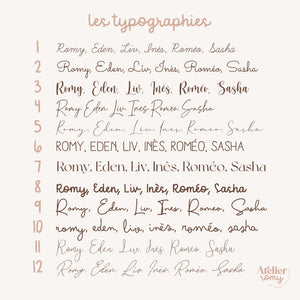 les typographies
1 Romy, Eden, Liv, Inès, Roméo, Sasha
2 Romy, Eden, Liv, Inès, Roméo, Sasha
3 Romy, Eden, Liv, Inès, Roméo, Sasha
4 Romy Eden Liv Inès Roméo Sasha
5 Romy, Eden, Liv, Ines, Romeo, Sasha
6 ROMY, EDEN, LIV, INÈS, ROMÉO, SASHA
7 Romy, Eden, Liv, Inès, Roméo, Sasha
8 Romy, Eden, Liv, Inès, Roméo, Sasha
9 Romy, Eden, Liv, Ines, Romeo, Sasha
10 romy, eden, liv, inès, roméo, sasha
11 Romy Eden Liv Inès Roméo Sasha
12 Romy, Eden, Liv, Inès, Roméo, Sasha
Atelier
romy